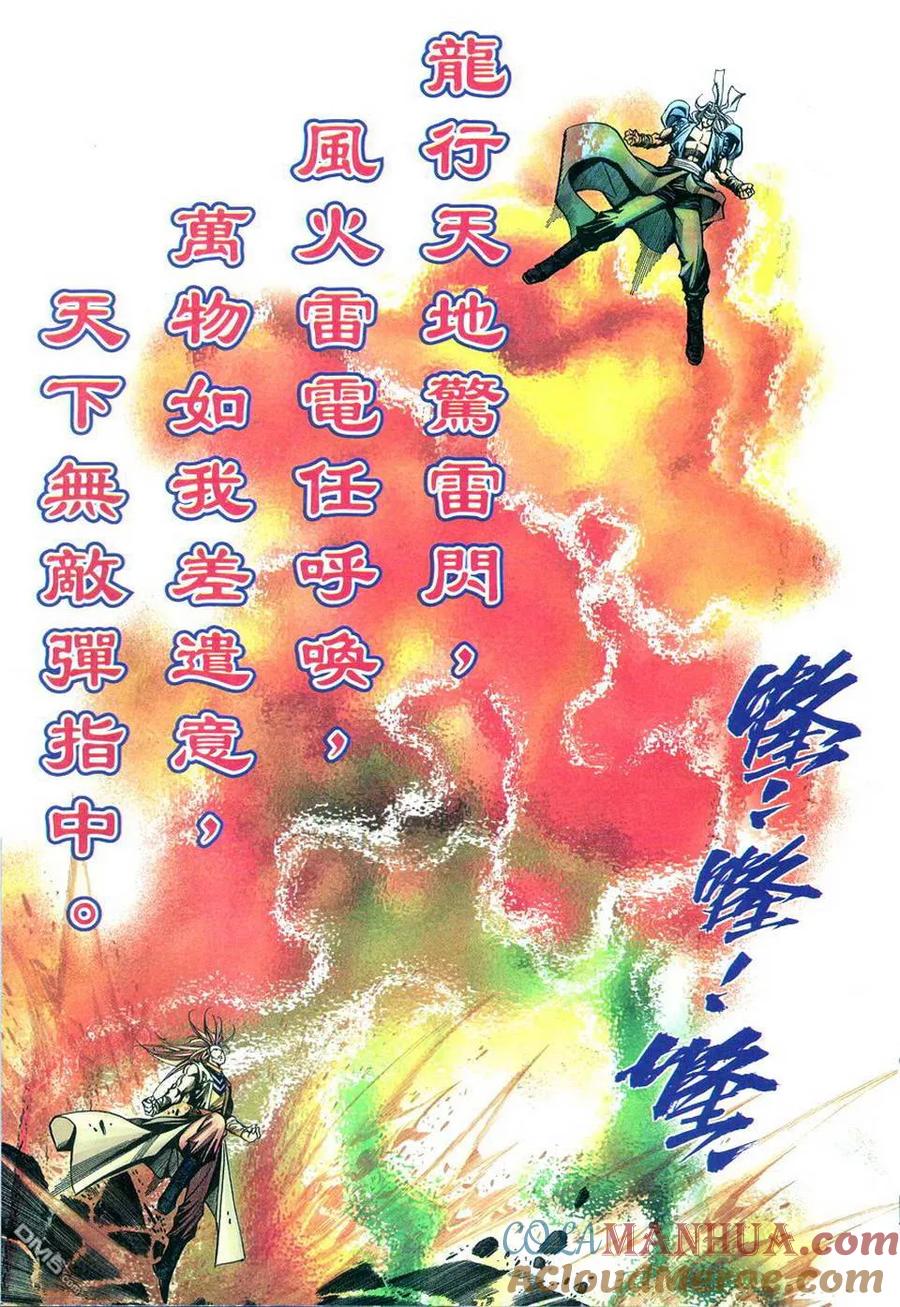 龍行天地驚雷閃，
風火雷電任呼喚，
萬物如我差遣意，
天下無敵彈指中。
COLAMANHUA.com
ACloudMerge.com